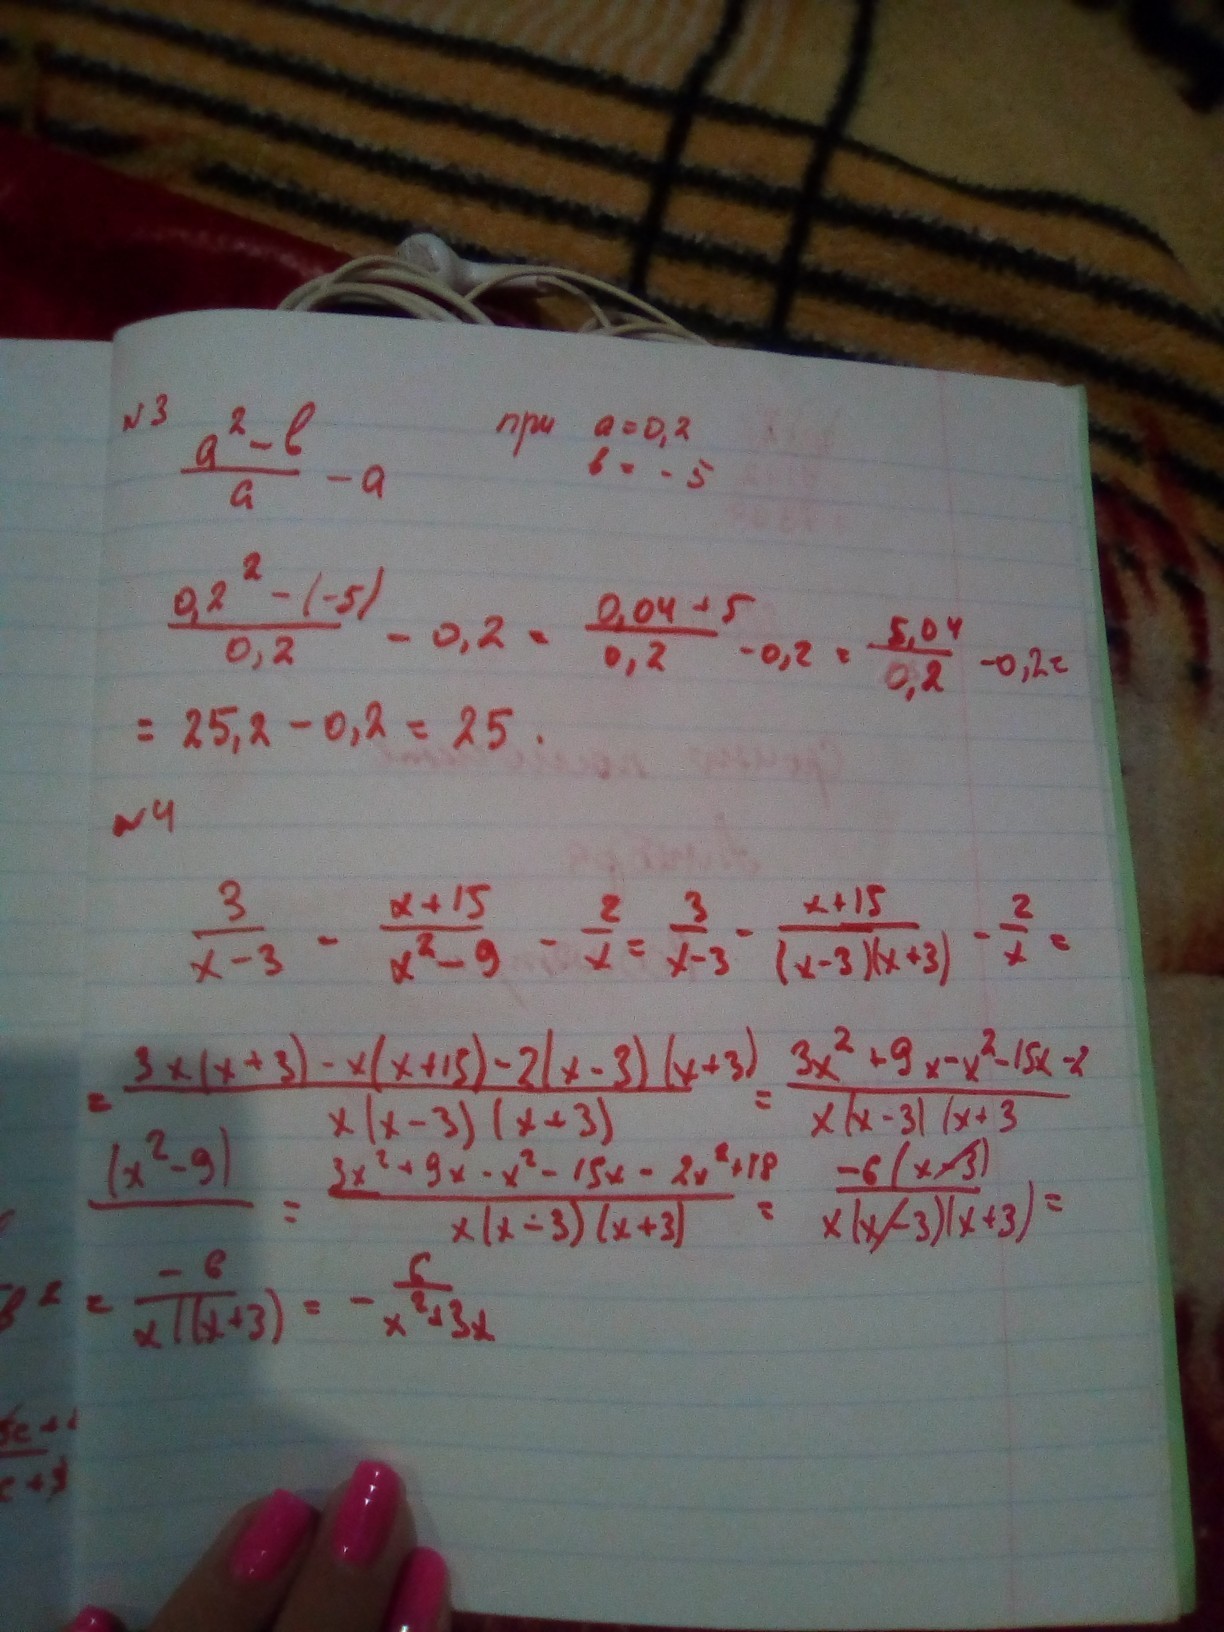 №3
(a² - b)/a - a при a = 0,2
b = - 5
(0,2² - (-5))/0,2 - 0,2 = (0,04 + 5)/0,2 - 0,2 = 5,04/0,2 - 0,2 =
= 25,2 - 0,2 = 25.
№4
3/(x - 3) - (x + 15)/(x² - 9) - 2/x = 3/(x - 3) - (x + 15)/((x - 3)(x + 3)) - 2/x =
= (3x(x + 3) - x(x + 15) - 2(x - 3)(x + 3))/(x(x - 3)(x + 3)) = (3x² + 9x - x² - 15x - 2)/(x(x - 3)(x + 3
(x² - 9) = (3x² + 9x - x² - 15x - 2x² + 18)/(x(x - 3)(x + 3)) = (-6(x - 3))/(x(x - 3)(x + 3)) =
= (-6)/(x((x + 3)) = - 6/(x² + 3x)